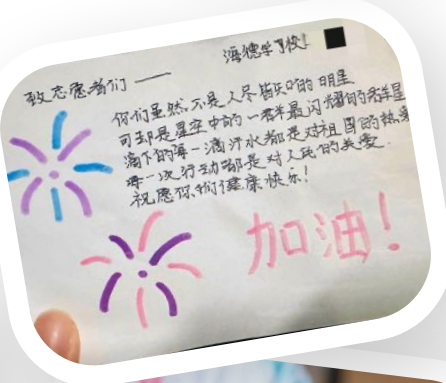 海德学校!
致志愿者们——
你们虽然不是人尽皆知的明星
可却是星空中的一群最闪耀的群星
滴下的每一滴汗水都是对祖国的热爱
每一次行动都是对人民的关爱
祝愿你们健康快乐!
加油!